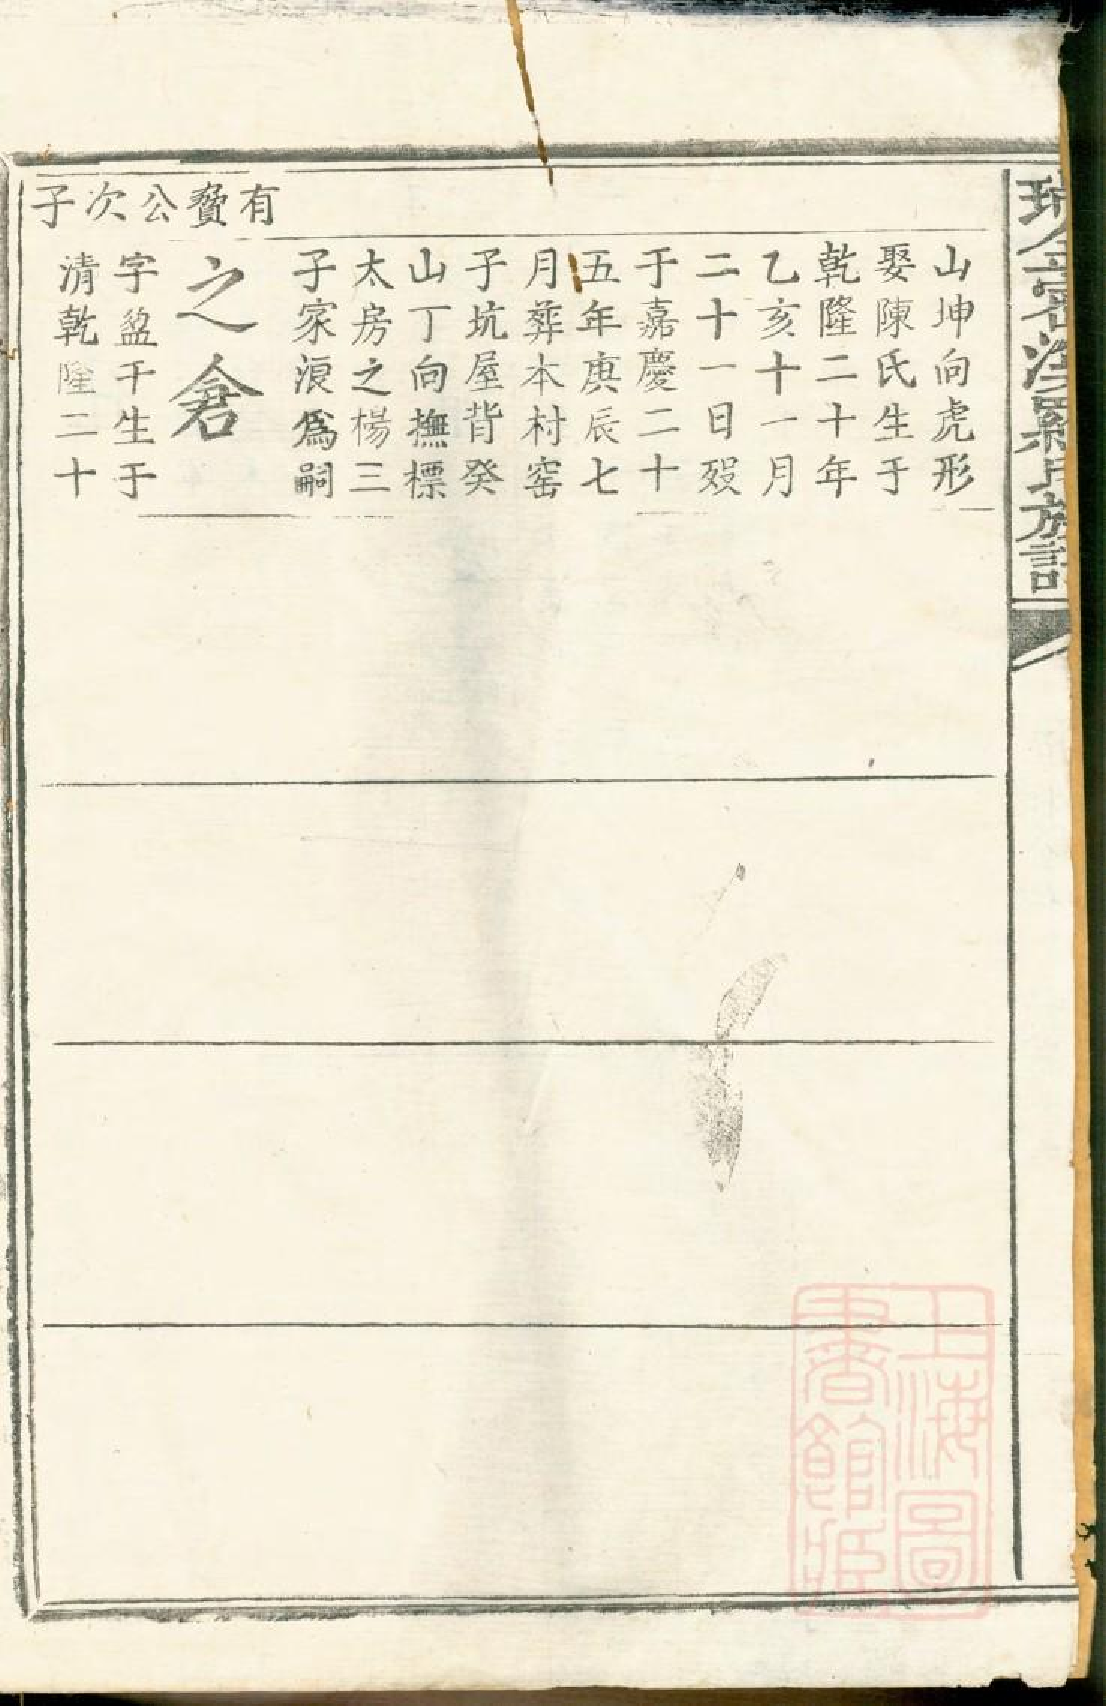 瑞金密溪羅氏族譜
山坤向虎形
娶陳氏生于
乾隆二十年
乙亥十一月
二十一日歿
于嘉慶二十
五年庚辰七
月葬本村窑
子坑屋背癸
山丁向撫標
太房之楊三
子家浪爲嗣
有賫公次子
之倉
字盈千生于
清乾隆二十
上海圖
書館藏